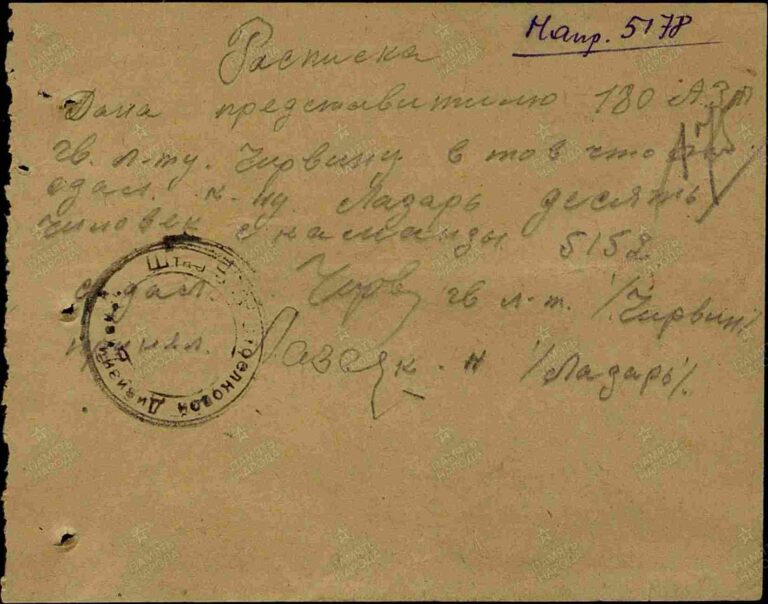 Напр. 5178
Расписка
Дана представителю 180 АЗП
гв. л-ту. Чирвину в тов что
сдал. к-ну Лазарь десять
человек с каманды 5152
сдал. гв л-т. /Чирвин/
принял. к-н /Лазарь/.
Штаб Стрелковой Дивизии